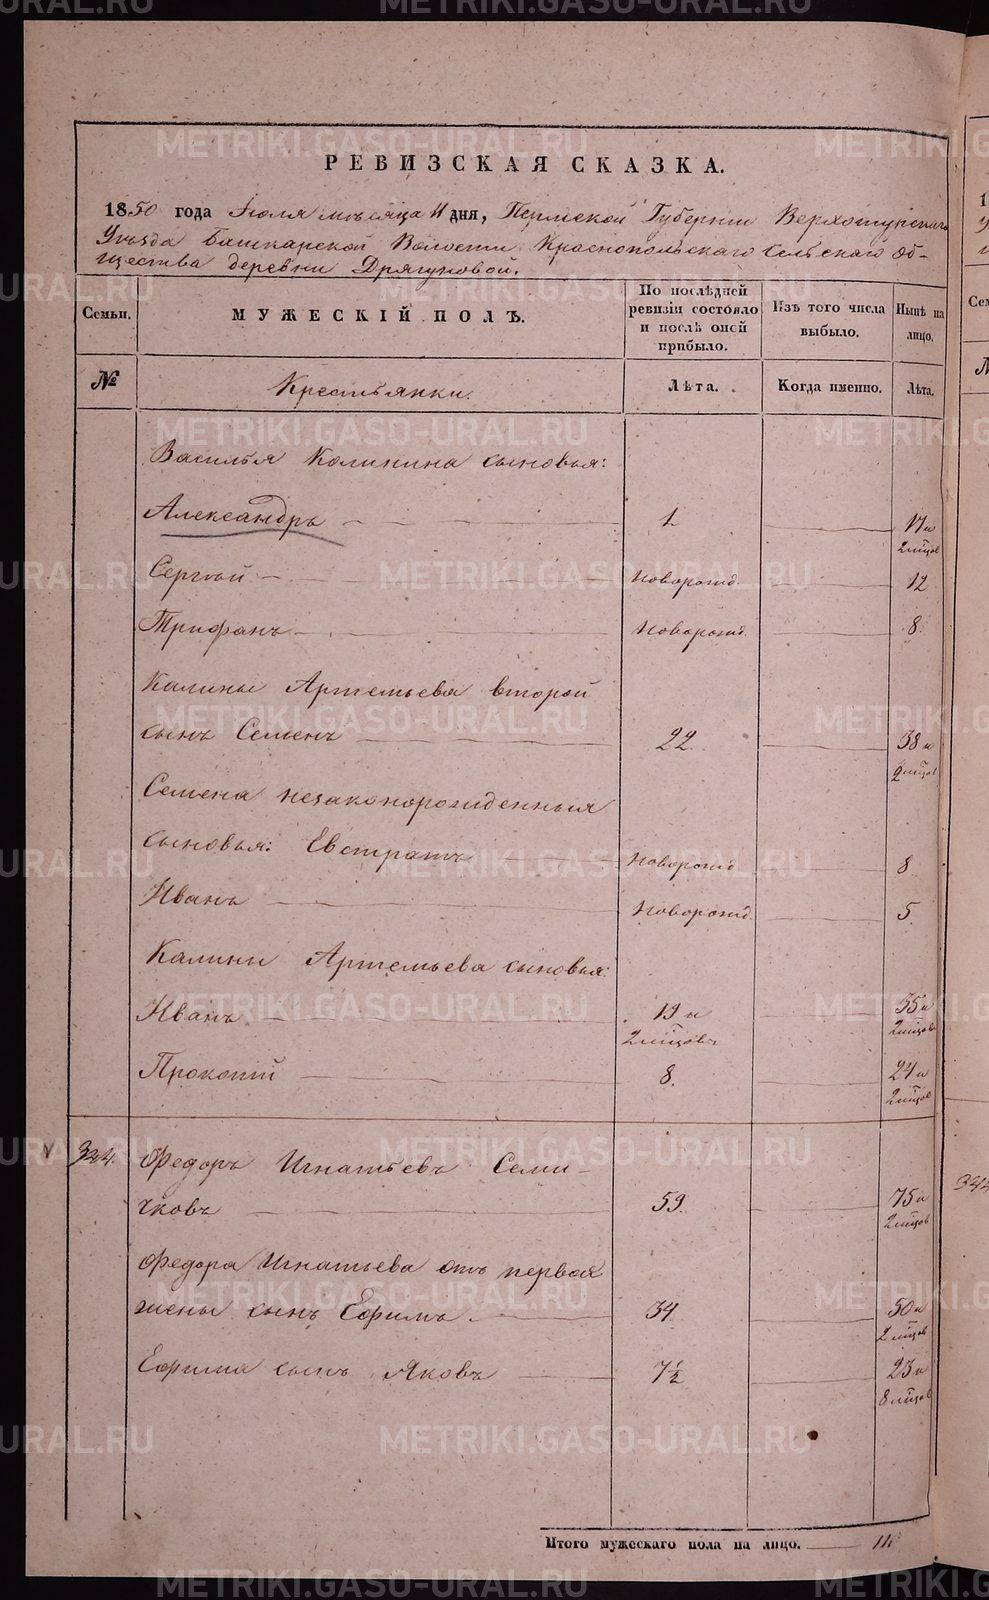 РЕВИЗСКАЯ СКАЗКА.
1850 года Іюля мѣсяца 11 дня, Пермской Губерніи Верхотурскаго
Уѣзда Башкарской Волости Краснопольскаго Сельскаго Об-
щества деревни Дрягуновой.
Семьи.
МУЖЕСКІЙ ПОЛЪ.
По послѣдней ревизіи состояло и послѣ оней прибыло.
Изъ того числа выбыло.
Нынѣ на лицо.
№
Крестьянки.
Лѣта.
Когда именно.
Лѣта.
Василья Калинина сыновья:
Александръ 1 17 и
2 мѣсцов
Сергѣй новорожд. 12
Трифанъ новорожд. 8.
Калины Артемьева второй
сынъ Семенъ 22 38 и
2 мѣсцов
Семена незаконорожденныя
сыновья: Евстратъ новорожд 8
Иванъ новорожд 5.
Калины Артемьева сыновья:
Иванъ 19 и 35 и
2 мѣсцовъ 2 мѣсцов
Прокопій 8. 24 и
2 мѣсцов
Федоръ Игнатьевъ Семи-
чковъ 59. 75 и
2 мѣсцов
Федора Игнатьева отъ первой
жены сынъ Ефимъ. 34 50 и
2 мѣсцов
Ефима сынъ Яковъ 7½ 23 и
8 мѣсцов
Итого мужескаго пола на лицо.